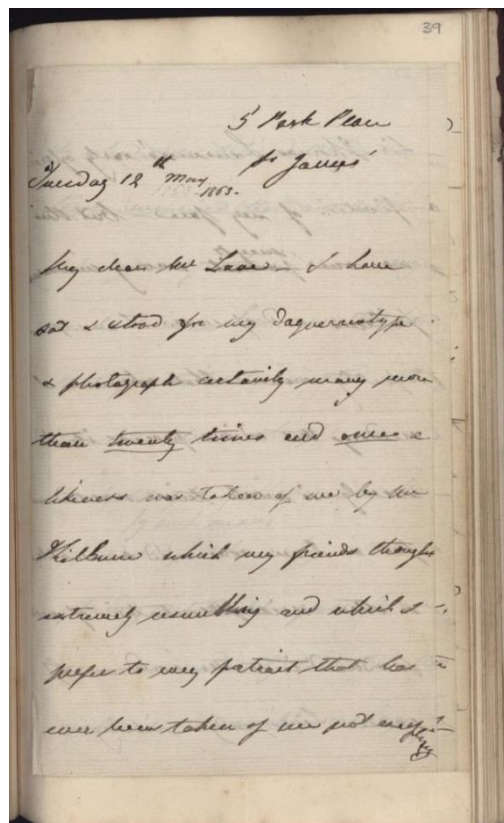 39
5 Park Place
St James'
Tuesday 12th May 1863.
My dear Mr Lane – I have
sat & stood for my Daguerreotype
& photograph certainly many more
than twenty times and once a
likeness was taken of me by Mr
Kilburn which my friends thought
extremely resembling and which I
prefer to any portrait that has
ever been taken of me not